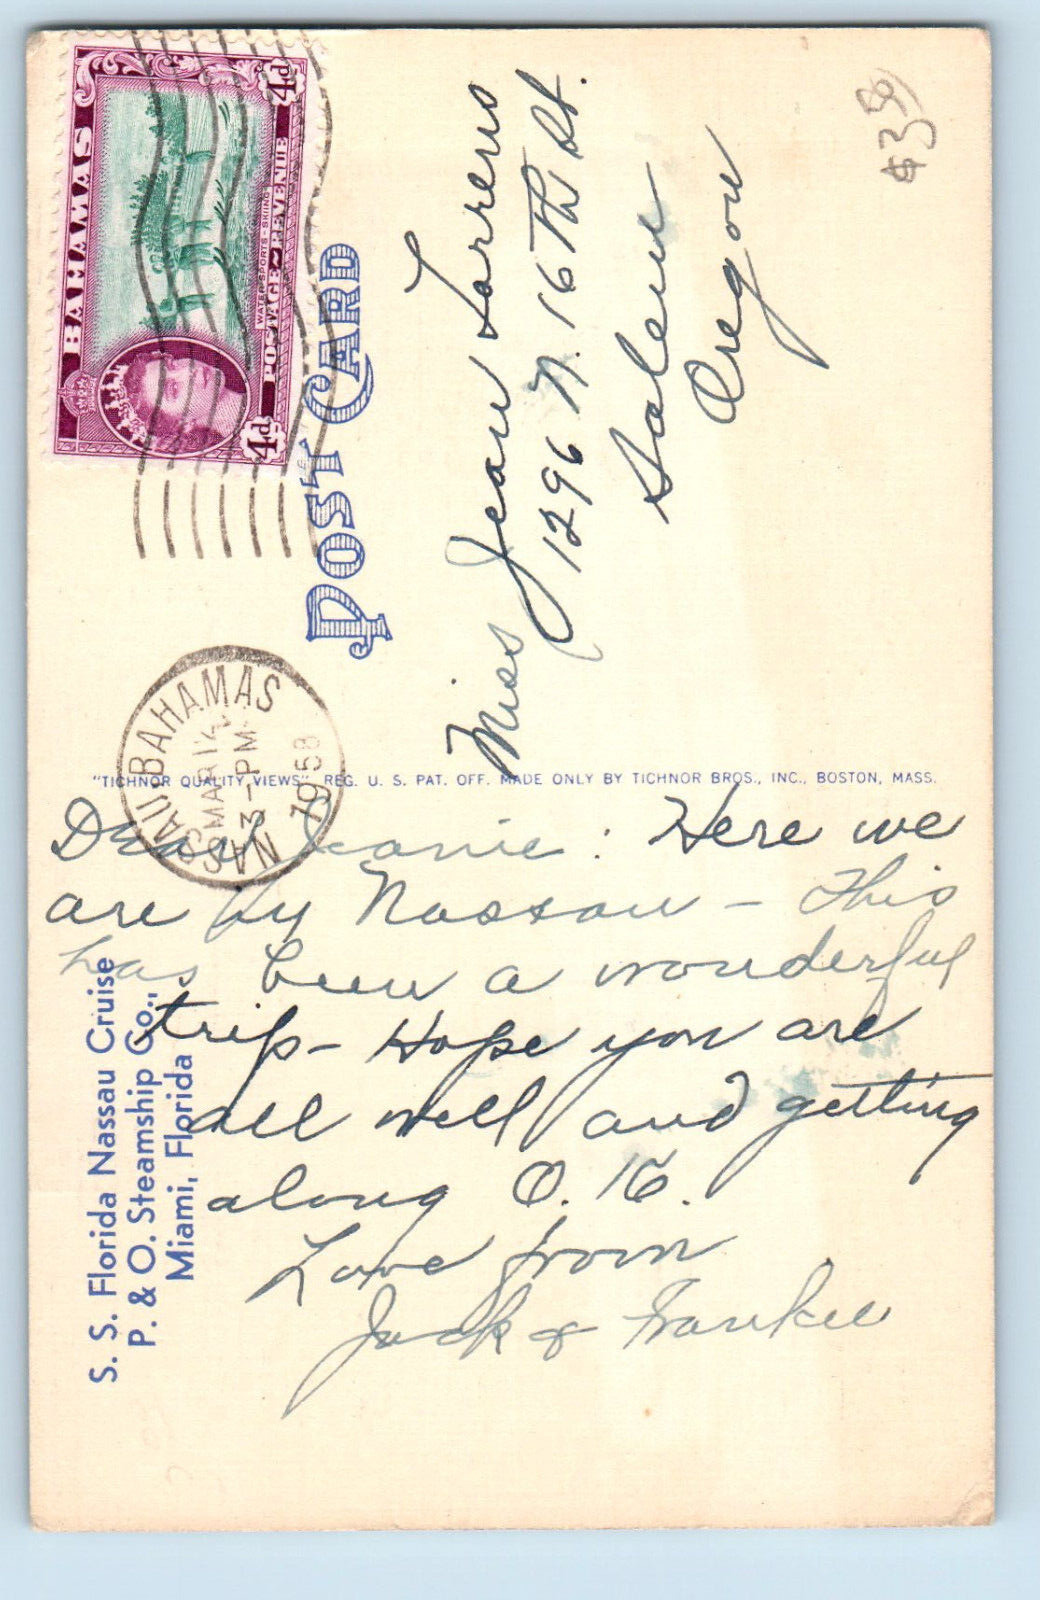 BAHAMAS
4d
4d
WATER SPORTS - SKIING
POSTAGE & REVENUE
POST CARD
NASSAU BAHAMAS
MAR 14
3-PM
1958
$3 50
Miss Jean Lorrens
1296 N. 16 Th St.
Salem
Oregon
"TICHNOR QUALITY VIEWS", REG. U. S. PAT. OFF. MADE ONLY BY TICHNOR BROS., INC., BOSTON, MASS.
Dear Jeanie: Here we
are in Nassau - This
has been a wonderful
trip - Hope you are
all well and getting
along O. K.
Love from
Jack & Frankie
S. S. Florida Nassau Cruise
P. & O. Steamship Co.,
Miami, Florida